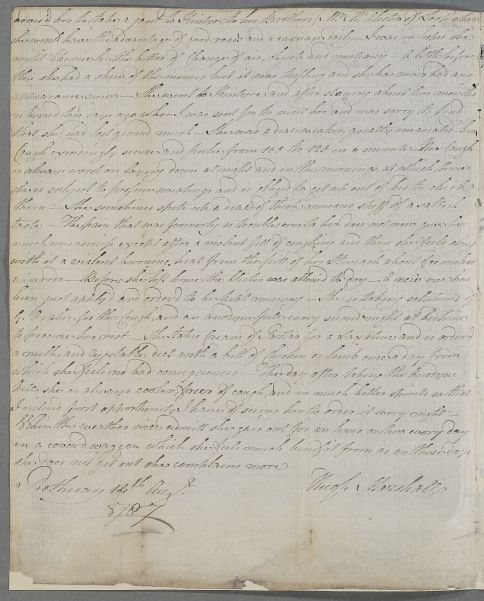 advised her to take a jaunt to Kintyre to her Brother's Mr
she would have the advantage of good roads and a carriage
might likewise be the better of change of air, objects and
this she had a shew of the menses but it was trifling and she has never had any
appearance since — She went to Kintyre and after staying about two months
returned ten days ago when I was sent for to visit her and was sorry to find
that she had lost ground much — She was a day weaker, greatly emaciated her
Cough exceedingly severe and pulse from 108 to 120 in a minute. Her Cough
is always worst on laying down at night and in the mornings, at which time
she is subject to profuse sweatings and is obliged to get up out of bed to check
them — She sometimes spits up a deal of thick mucous stuff of a saltish
taste. The pain that was formerly so troublesome to her does not now give her
much uneasiness except after a violent fitt of coughing and then she feels along
with it a violent burning heat from the pitt of her Stomach about
Before she left home the blister was allowed to dry — A new one has
been just applyd and ordered to be kept running — She is taking solutions of
G. Arabic for the Cough, and an anodyne pill every second night at bedtime
to procure her rest — She takes Cream of Tartar for a Laxative and is ordered
a milk and vegetable diet with a bitt of Chicken or lamb once a day from
which she feels no bad consequences — The day after taking the anodyne
pill she is always cooler, freer of cough, and in much better spirits so that
I intend first opportunity I have of seeing her to order it every night —
When the weather will admitt she goes out for an hour or two every day
in a coverd waggon which she feels much benefit from as on those days
she does not get out she complains more
Rothesay 14th Augt. Hugh Marshall
1787